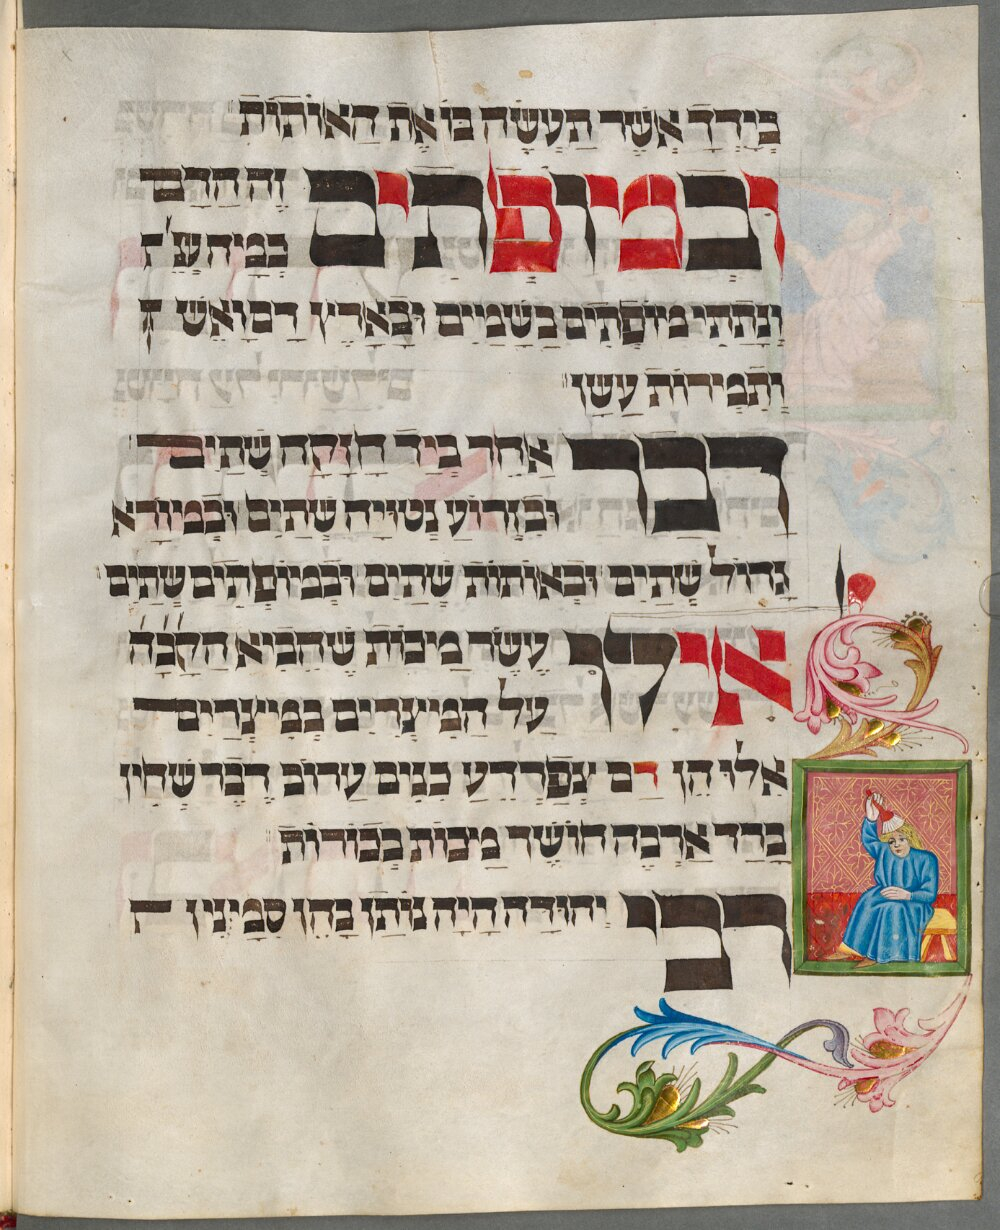 בְּיָדֶךָ אֲשֶׁר תַּעֲשֶׂה בּוֹ אֶת הָאוֹתוֹת
וּבְמוֹפְתִים זֶה הַדָּם
כְּמָה שֶׁנֶּ'
וְנָתַתִּי מוֹפְתִים בַּשָּׁמַיִם וּבָאָרֶץ דָּם וָאֵשׁ
וְתִמְרוֹת עָשָׁן
דָּבָר אַחֵר בְּיָד חֲזָקָה שְׁתַּיִם
וּבִזְרוֹעַ נְטוּיָה שְׁתַּיִם וּבְמוֹרָא
גָּדוֹל שְׁתַּיִם וּבְאוֹתוֹת שְׁתַּיִם וּבְמוֹפְתִים שְׁתַּיִם
אֵילּוּ עֶשֶׂר מַכּוֹת שֶׁהֵבִיא הַקָּבָּ''ה
עַל הַמִּצְרִים בְּמִצְרַיִם
אֵלּוּ הֵן דָּם צְפַרְדֵּעַ כִּנִּים עָרוֹב דֶּבֶר שְׁחִין
בָּרָד אַרְבֶּה חוֹשֶׁךְ מַכּוֹת בְּכוֹרוֹת
רַבִּי יְהוּדָה הָיָה נוֹתֵן בָּהֶן סִמָּנִין